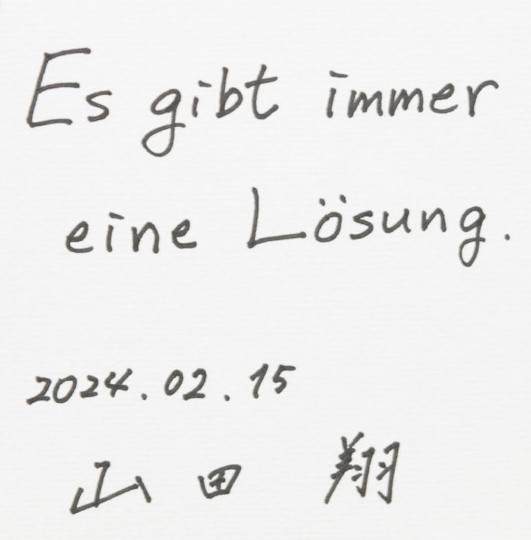 Es gibt immer
eine Lösung.
2024.02.15
山田 翔